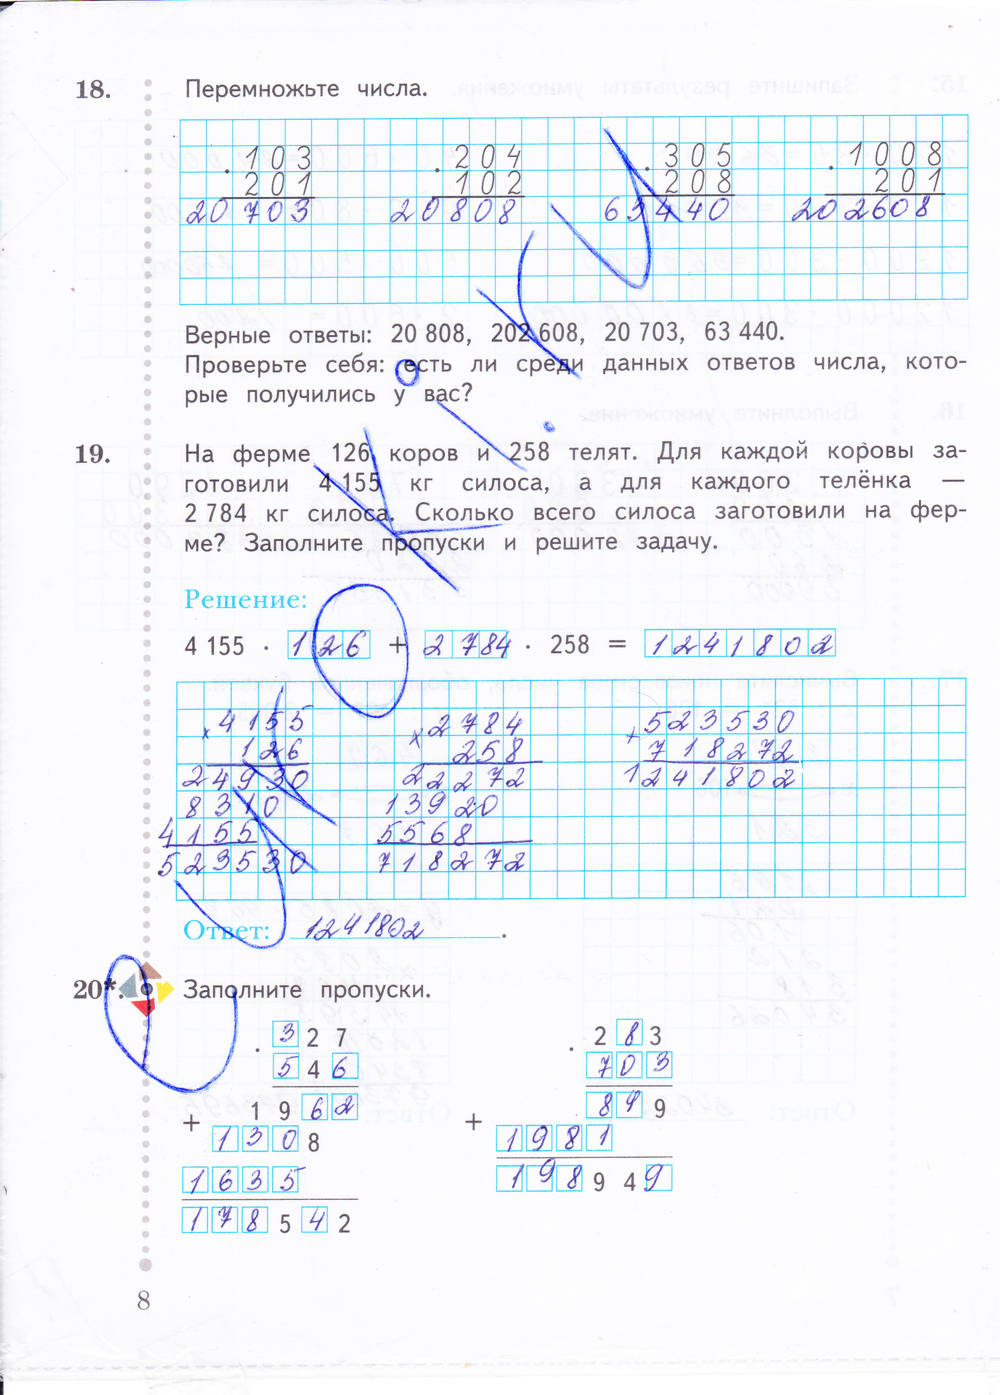 18. Перемножьте числа.
103 204 305 1008
201 102 208 201
20703 20808 63440 202608
Верные ответы: 20 808, 202 608, 20 703, 63 440.
Проверьте себя: есть ли среди данных ответов числа, кото-
рые получились у вас?
19. На ферме 126 коров и 258 телят. Для каждой коровы за-
готовили 4 155 кг силоса, а для каждого телёнка —
2 784 кг силоса. Сколько всего силоса заготовили на фер-
ме? Заполните пропуски и решите задачу.
Решение:
4 155 · 126 + 2784 · 258 = 1241802
× 4155 × 2784 + 523530
126 258 718272
24930 22272 1241802
8310 13920
4155 5568
523530 718272
Ответ: 1241802.
20*. Заполните пропуски.
· 327 · 283
546 703
+ 1962 + 849
1308 1981
1635 198949
178542
8